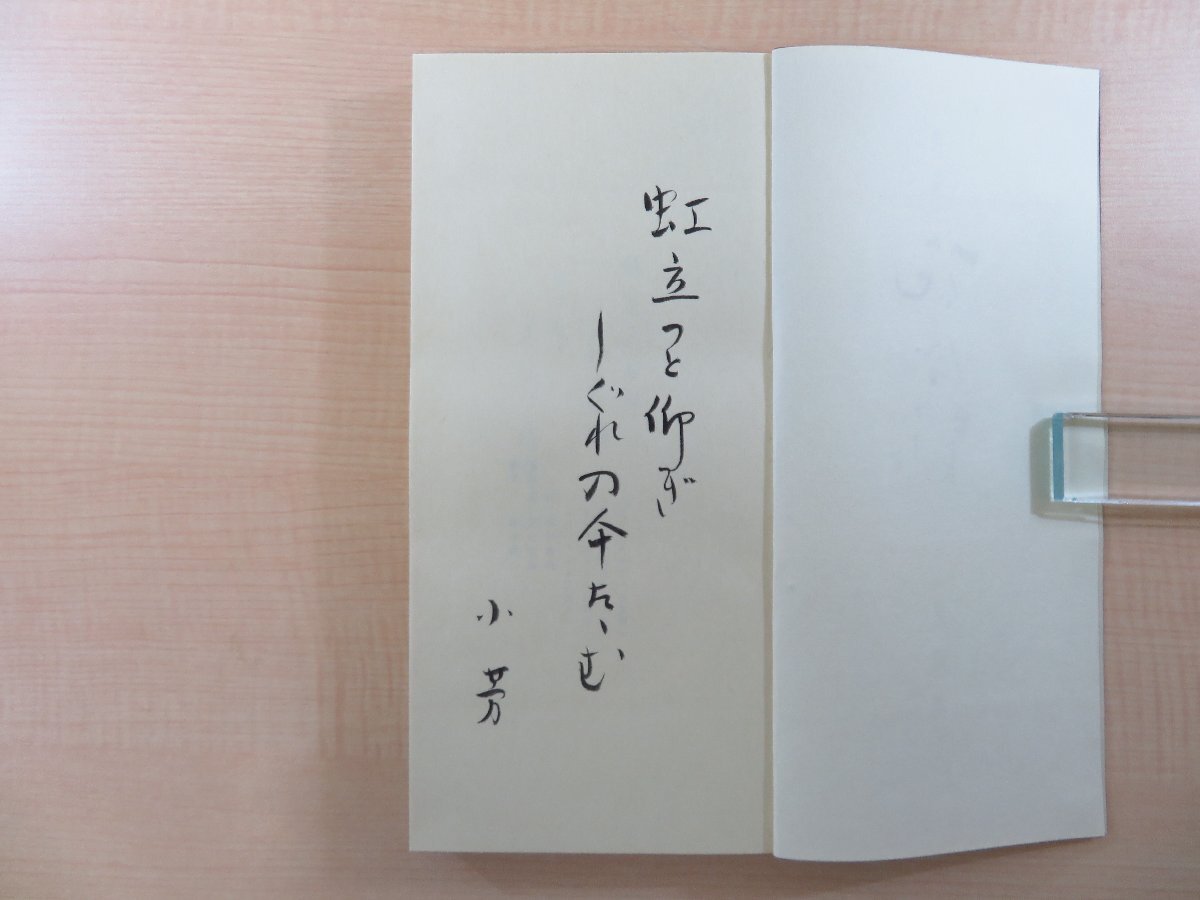 虹立つと仰ぎ
しぐれの傘たゝむ
小芳